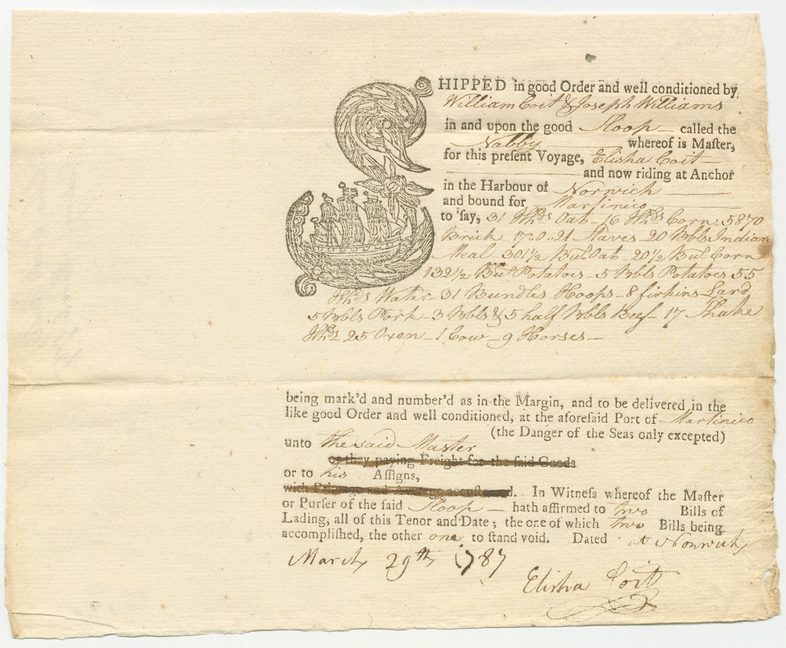 SHIPPED in good Order and well conditioned by
William Coit & Joseph Williams
in and upon the good Sloop called the
Nabby whereof is Master,
for this present Voyage, Elisha Coit
and now riding at Anchor
in the Harbour of Norwich
and bound for Martinico
to say, 31 Hhds Oats 16 Hhds Corn 5870
Brick 21 Staves 20 Bbls Indian
Meal 301½ Bul Oat 20½ Bul Corn
132½ Bul Potatoes 5 Bbls Potatoes 55
Hhds Water 31 Bundles Hoops 8 firkins Lard
5 Bbls Pork 3 Bbls & 5 half Bbls Beef 17 Shake
Hhds 25 Oxen 1 Cow 9 Horses
being mark'd and number'd as in the Margin, and to be delivered in the
like good Order and well conditioned, at the aforesaid Port of Martinico
(the Danger of the Seas only excepted)
unto the said Master
or they paying Freight for the said Goods
or to his Assigns,
with Primage and Average accustomed. In Witness whereof the Master
or Purser of the said Sloop hath affirmed to two Bills of
Lading, all of this Tenor and Date; the one of which two Bills being
accomplished, the other one to stand void. Dated at Norwich
March 29th 1787
Elisha Coit